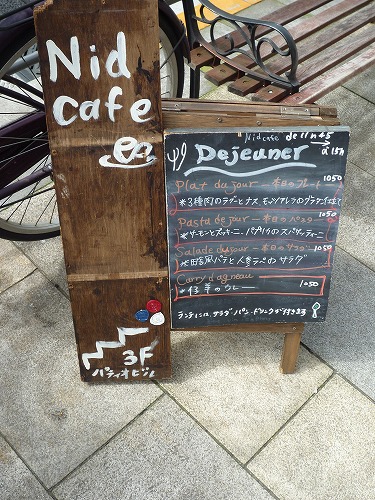 Nid
cafe
3F
パティオビル
Nid cafe de 11h45
→ à 15h
Dejeuner
Plat du jour — 本日のプレート 1050
*3種肉のラグーとナス モッツァレラのグラタン仕立て
Pasta de jour — 本日のパスタ 1050
*サーモンとズッキーニ、バジルのスパゲッティーニ
Salade du jour — 本日のサラダ 1050
*田舎風パテと人参ラペのサラダ
Curry d'agneau
*仔羊のカレー 1050
ランチには、サラダ・パン・ドリンクが付きます